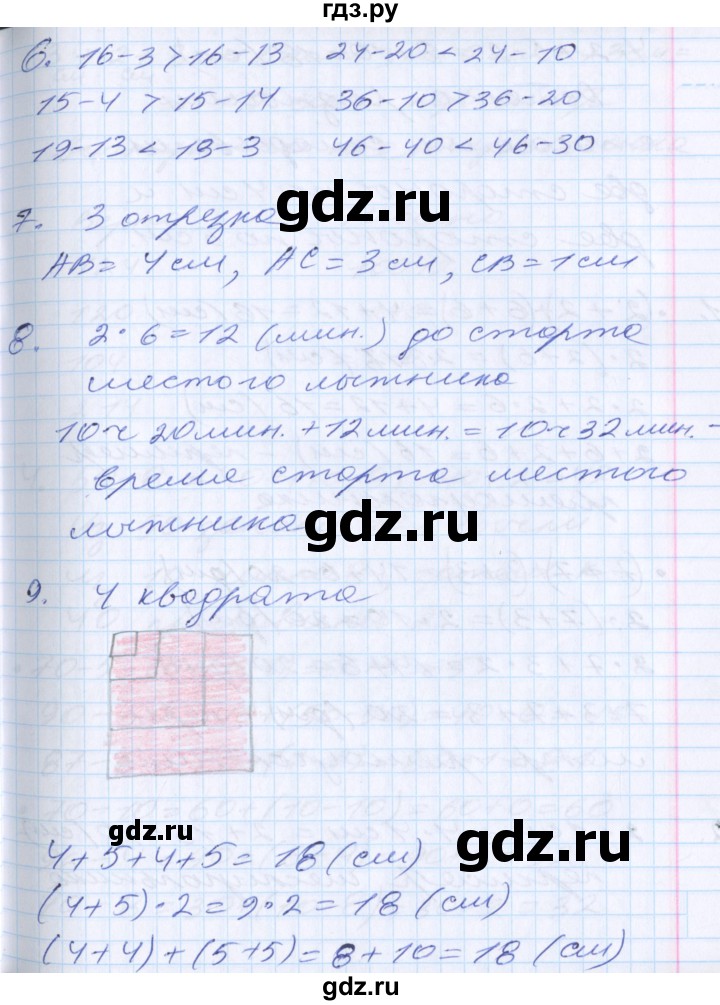 гдз.ру
6. 16-3>16-13 24-20<24-10
15-4>15-14 36-10>36-20
19-13<19-3 46-40<46-30
gdz.ru
7. 3 отрезка
AB=4см, AC=3см, CB=1см
gdz.ru
8. 2·6=12 (мин.) до старта
шестого лыжника
10ч 20мин.+12мин.=10ч32мин.-
время старта шестого
лыжника
gdz.ru
9. 4 квадрата
gdz.ru
gdz.ru
4+5+4+5=18(см)
(4+5)·2=9·2=18(см)
(4+4)+(5+5)=8+10=18(см)
gdz.ru